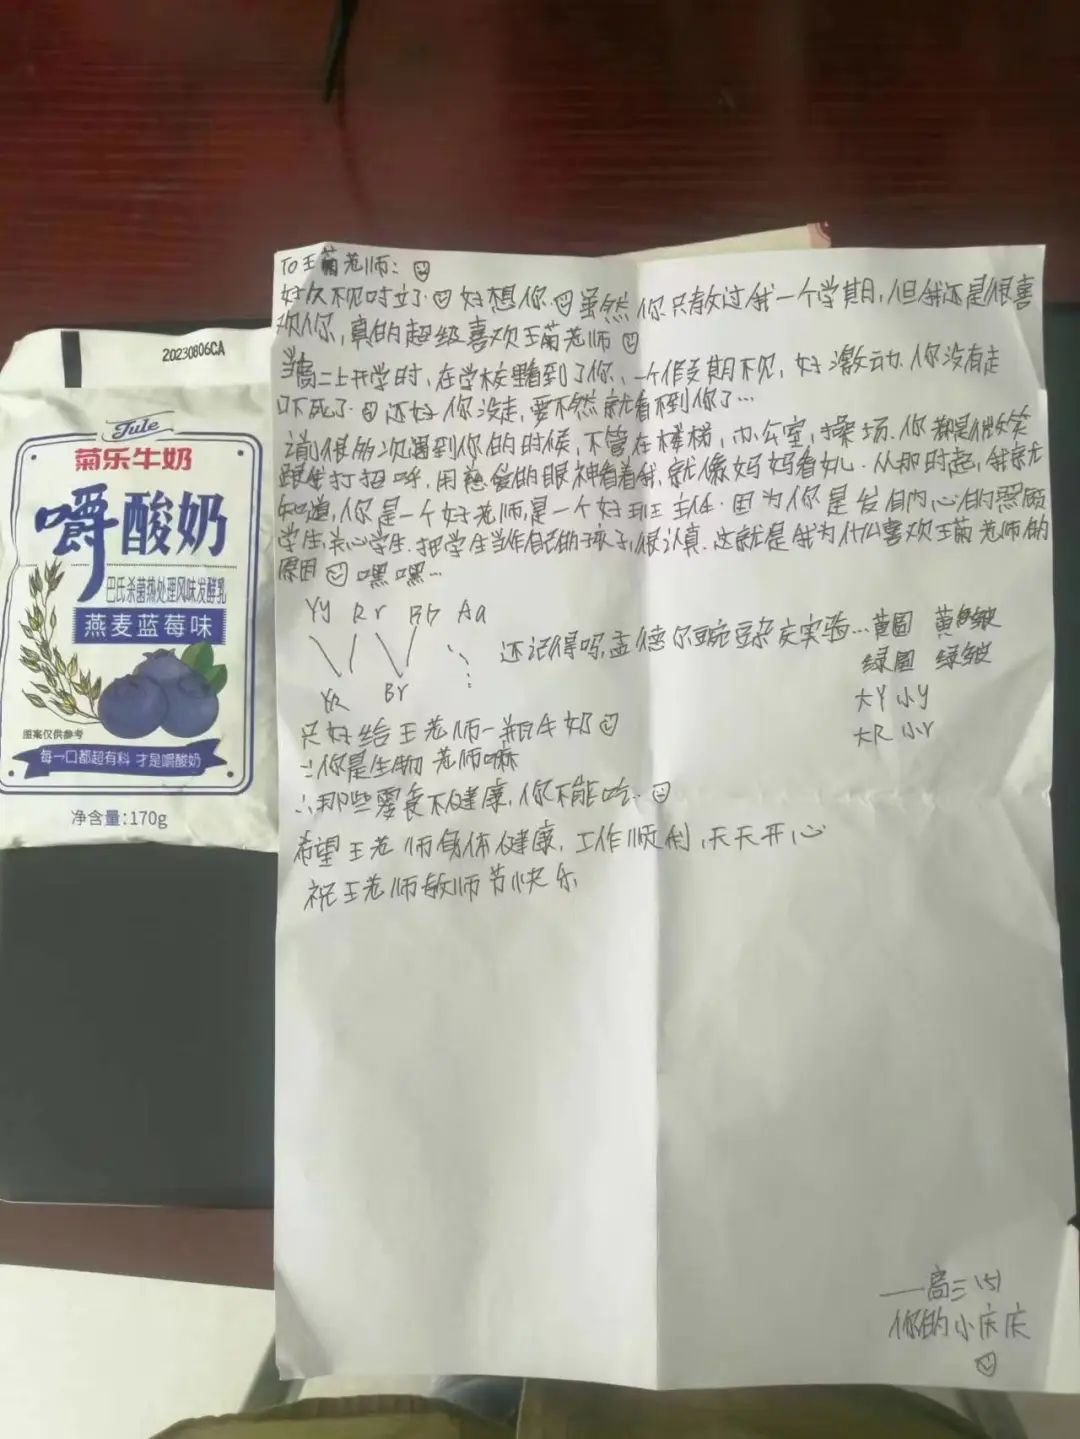 20230806CA
Jule
菊乐牛奶
嚼酸奶
巴氏杀菌热处理风味发酵乳
燕麦蓝莓味
图案仅供参考
每一口都超有料 才是嚼酸奶
净含量:170g
To王菊老师:
好久不见时立了. 好想你. 虽然你只教过我一个学期,但我还是很喜
欢你,真的超级喜欢王菊老师
当高二上开学时,在学校里看到了你,一个假期不见,好激动.你没有走
吓死了. 还好你没走,要不然就看不到你了...
之前很多次遇到你的时候,不管在楼梯,办公室,操场.你都是微笑
跟我打招呼,用慈爱的眼神看着我,就像妈妈看女儿.从那时起,我就
知道,你是一个好老师,是一个好班主任.因为你是发自内心的照顾
学生,关心学生.把学生当作自己的孩子,很认真.这就是我为什么喜欢王菊老师的
原因 嘿嘿...
Yy Rr Bb Aa
YR Br
还记得吗,孟德尔豌豆杂交实验...黄圆 黄皱
绿圆 绿皱
大Y小y
大R小r
只好给王老师一瓶牛奶
∵你是生物老师嘛
∴那些零食不健康,你不能吃..
希望王老师身体健康,工作顺利,天天开心
祝王老师教师节快乐
——高三(5)
你的小庆庆